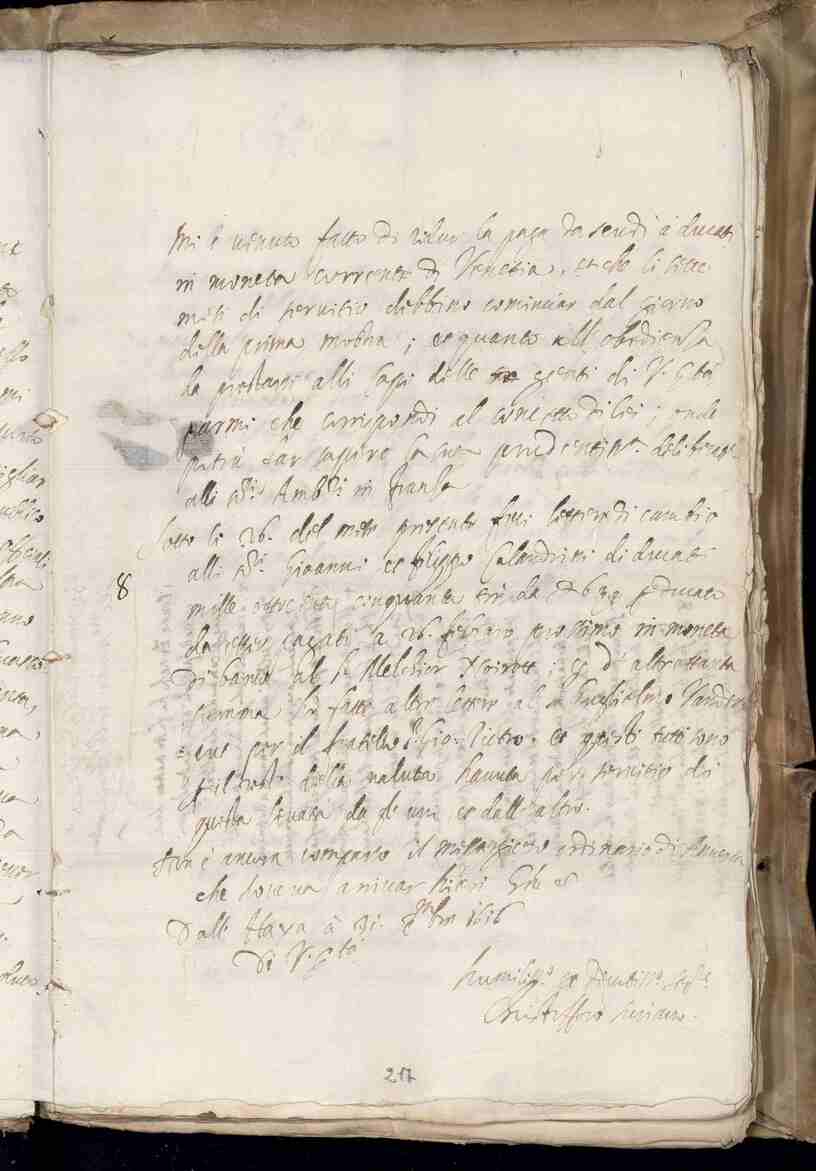 mi è venuto fatto di ridur la paga da scudi à ducati
in moneta corrente di Venetia, et che li sette
mesi di servitio debbino cominciar dal giorno
della prima mostra; et quanto all'obedienza
da prestarsi alli Capi delle genti di V. Sertà
parmi che corrispondi al concetto di lei; onde
potrà far sapere la sua prudentissa. deliberatne
alli ssri. Ambri. in Franza
Sotto li 26. del mese presente feci lettere di cambio
alli ssri. Gioanni et Filippo Calandrini di ducati
8
mille cinquanta tre da per ducato
da esser pagati a 26. febraro prossimo in moneta
di banco al sr Melchior; et d'altrettanta
summa ho fatto altre lettere al sr Guglielmo Vander
per il fratello Gio. Pietro. et questi tutti sono
per il resto della valuta havuta per servitio di
questa levata da l'un et dall'altro.
Non è ancora comparso il messaggiero ordinario di Anversa
che doveva arrivar hieri Gratie etc
Dall'Haya à 31. Xmbre 1616
Di V. Sertà
humilissmo et devotissmo servre
Christofforo Suriano.
217